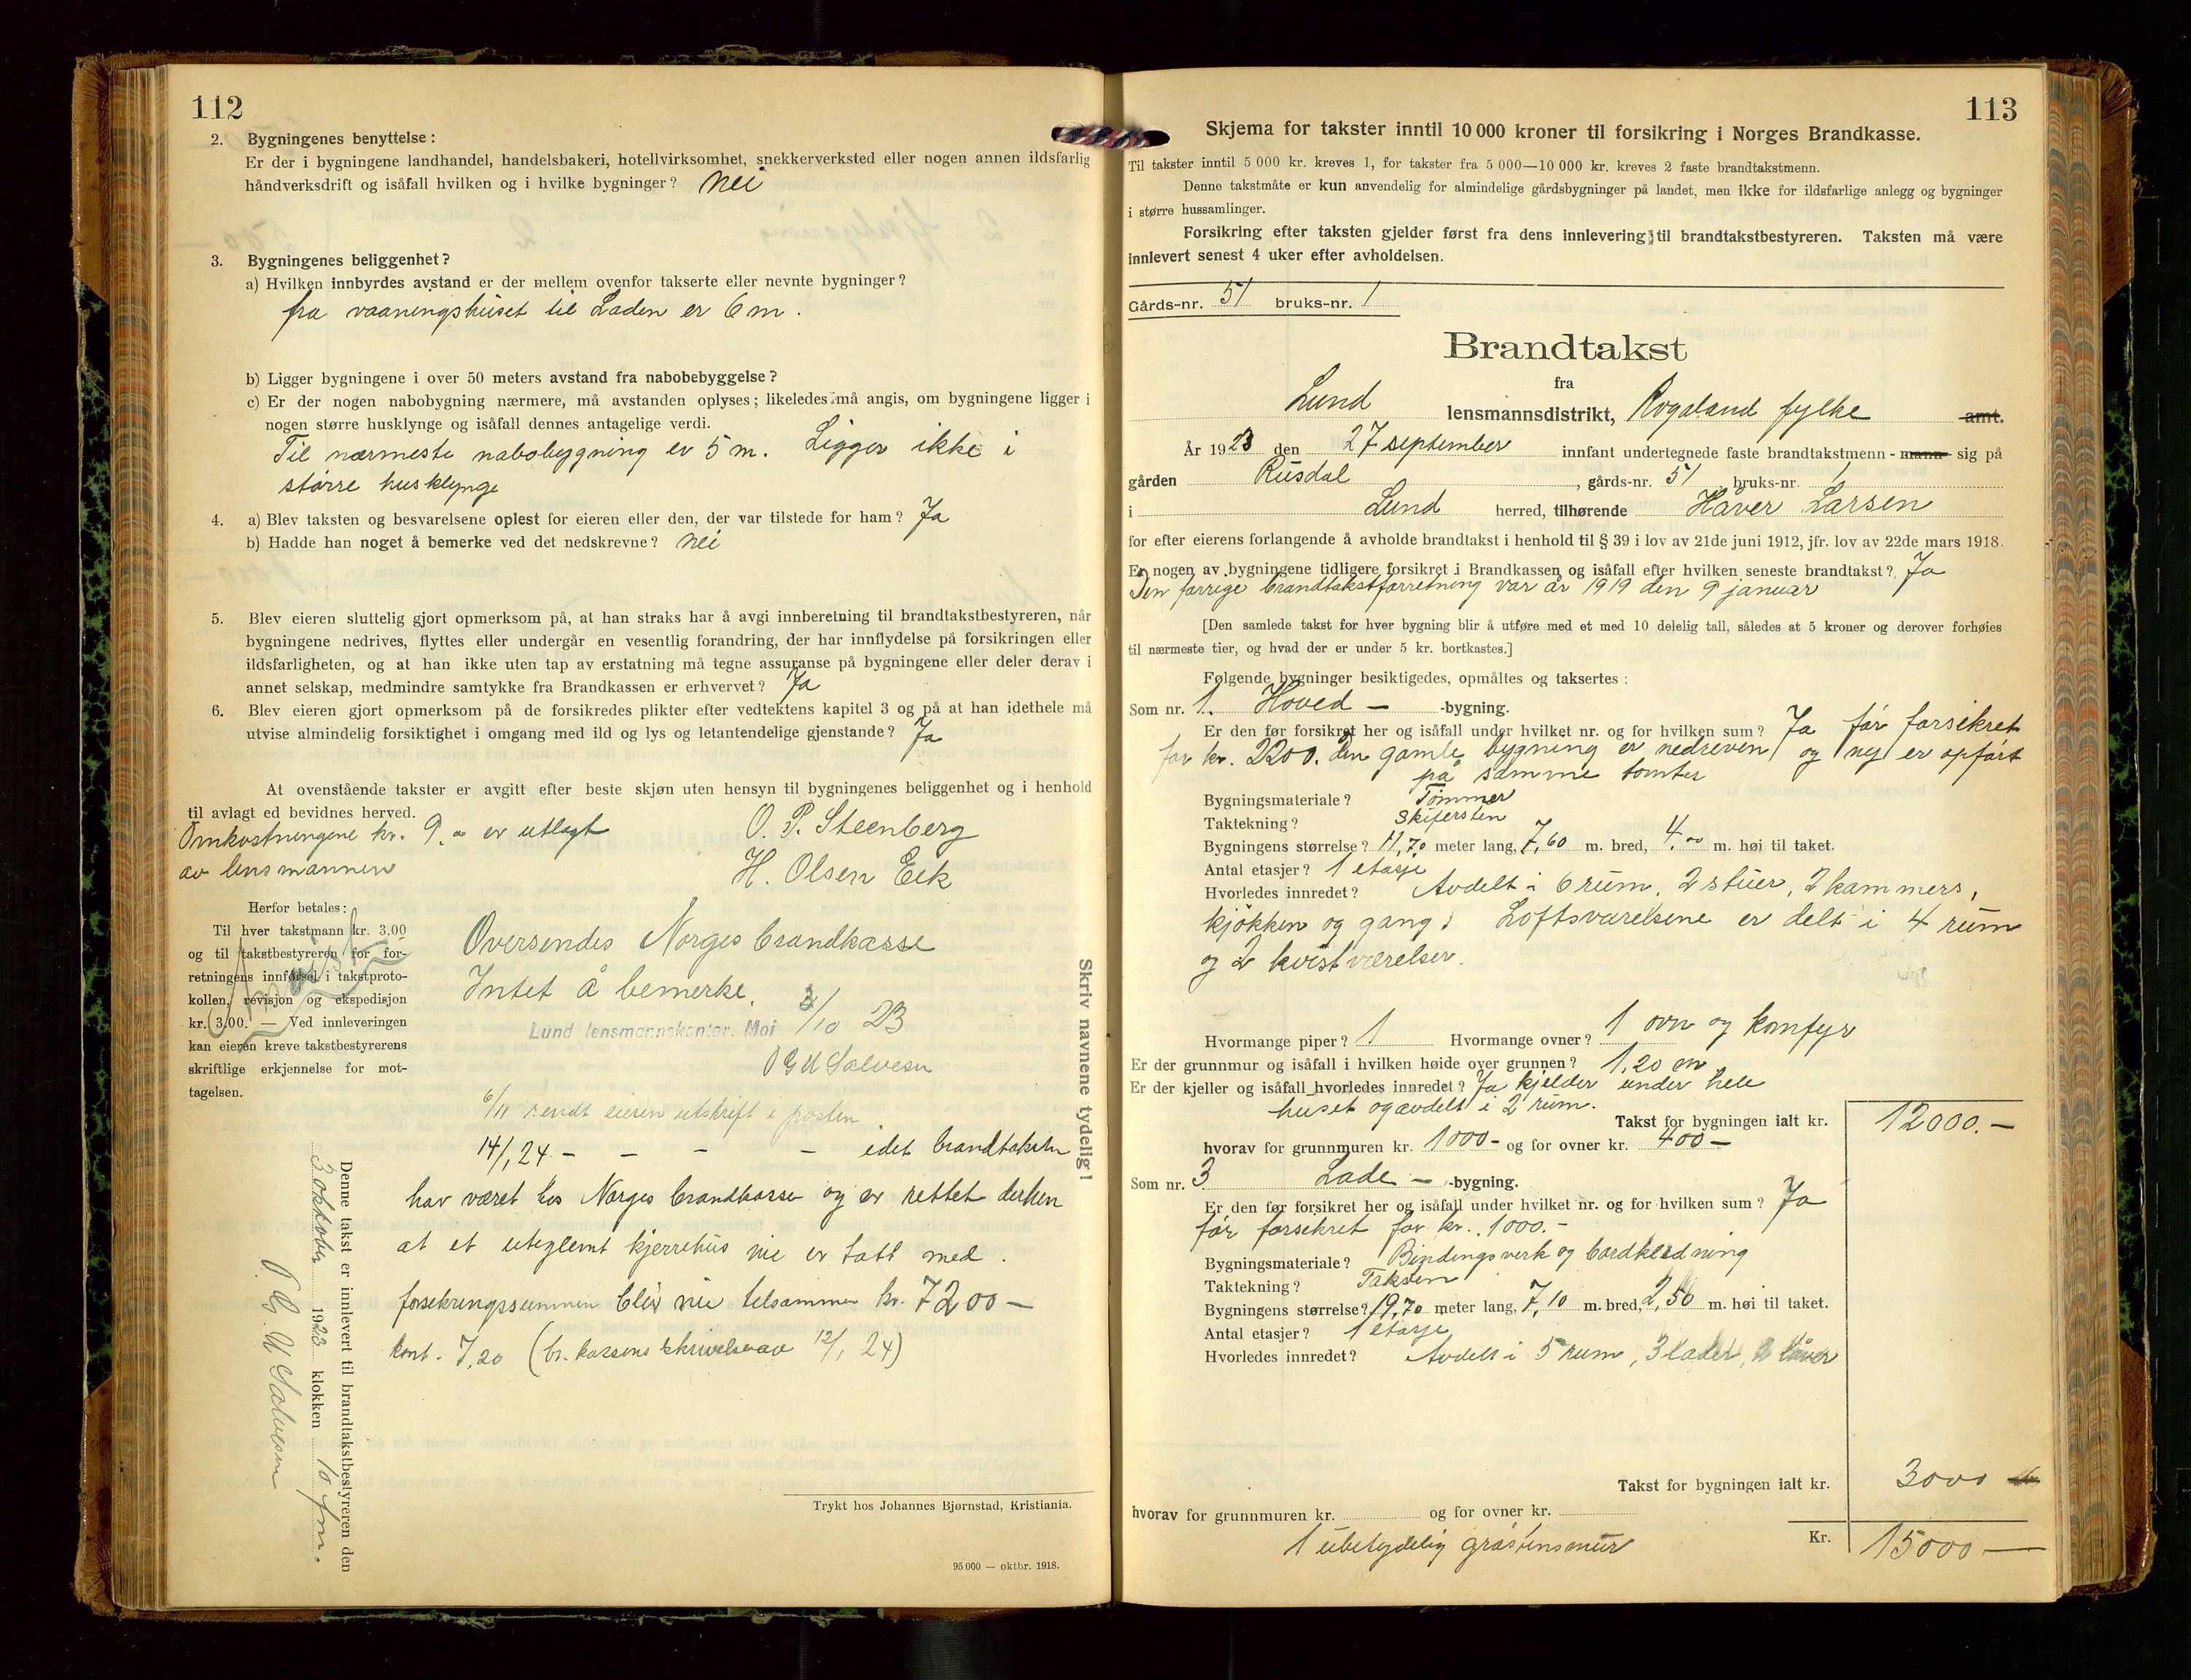 112
2. Bygningenes benyttelse:
Er der i bygningene landhandel, handelsbakeri, hotellvirksomhet, snekkerverksted eller nogen annen ildsfarlig
håndverksdrift og isåfall hvilken og i hvilke bygninger? nei
3. Bygningenes beliggenhet?
a) Hvilken innbyrdes avstand er der mellem ovenfor takserte eller nevnte bygninger?
fra vaaningshuset til Laden er 6 m.
b) Ligger bygningene i over 50 meters avstand fra nabobebyggelse?
c) Er der nogen nabobygning nærmere, må avstanden oplyses; likeledes må angis, om bygningene ligger i
nogen større husklynge og isåfall dennes antagelige verdi.
Til nærmeste nabobygning er 5 m. Ligger ikke i
större husklynge
4. a) Blev taksten og besvarelsene oplest for eieren eller den, der var tilstede for ham? Ja
b) Hadde han noget å bemerke ved det nedskrevne? nei
5. Blev eieren sluttelig gjort opmerksom på, at han straks har å avgi innberetning til brandtakstbestyreren, når
bygningene nedrives, flyttes eller undergår en vesentlig forandring, der har innflydelse på forsikringen eller
ildsfarligheten, og at han ikke uten tap av erstatning må tegne assuranse på bygningene eller deler derav i
annet selskap, medmindre samtykke fra Brandkassen er erhvervet? Ja
6. Blev eieren gjort opmerksom på de forsikredes plikter efter vedtektens kapitel 3 og på at han idethele må
utvise almindelig forsiktighet i omgang med ild og lys og letantendelige gjenstande? Ja
At ovenstående takster er avgitt efter beste skjøn uten hensyn til bygningenes beliggenhet og i henhold
til avlagt ed bevidnes herved.
Omkostningene kr. 9.00 er utlagt
av lensmannen
O. P. Steenberg
H. Olsen Eik
Herfor betales:
Til hver takstmann kr. 3.00
og til takstbestyreren for for-
retningens innførsel i takstproto-
kollen, revisjon og ekspedisjon
kr. 3.00. — Ved innleveringen
kan eieren kreve takstbestyrerens
skriftlige erkjennelse for mot-
tagelsen.
Oversendes Norges brandkasse
Intet å bemerke.
Lund lensmannskontor. Moi 3/10 23
O G U Salvesen
6/11 sendt eieren utskrift i posten
14/1 24 - - - - idet brandtaksten
hav været hos Norges brandkasse og er rettet derhen
at et uteglemt kjerrehus nu er tatt med.
forsikringssummen blir nu tilsammen kr. 7200 —
kont. 7,20 (br. kassens skrivelse av 12/1 24)
Skriv navnene tydelig!
Denne takst er innlevert til brandtakstbestyreren den
3 oktober 1923 klokken 10 fm.
O. G. U Salvesen
Trykt hos Johannes Bjørnstad, Kristiania.
95 000 — oktbr. 1918.
113
Skjema for takster inntil 10 000 kroner til forsikring i Norges Brandkasse.
Til takster inntil 5 000 kr. kreves 1, for takster fra 5 000—10 000 kr. kreves 2 faste brandtakstmenn.
Denne takstmåte er kun anvendelig for almindelige gårdsbygninger på landet, men ikke for ildsfarlige anlegg og bygninger
i større hussamlinger.
Forsikring efter taksten gjelder først fra dens innlevering til brandtakstbestyreren. Taksten må være
innlevert senest 4 uker efter avholdelsen.
Gårds-nr. 51 bruks-nr. 1
Brandtakst
fra
Lund lensmannsdistrikt, Rogaland fylke amt.
År 1923 den 27 september innfant undertegnede faste brandtakstmenn - mann sig på
gården Rusdal, gårds-nr. 51 bruks-nr. 1
i Lund herred, tilhørende Håver Larsen
for efter eierens forlangende å avholde brandtakst i henhold til § 39 i lov av 21de juni 1912, jfr. lov av 22de mars 1918.
Er nogen av bygningene tidligere forsikret i Brandkassen og isåfall efter hvilken seneste brandtakst? Ja
Den forrige brandtakstforretning var år 1919 den 9 januar
[Den samlede takst for hver bygning blir å utføre med et med 10 delelig tall, således at 5 kroner og derover forhøies
til nærmeste tier, og hvad der er under 5 kr. bortkastes.]
Følgende bygninger besiktigedes, opmåltes og taksertes:
Som nr. 1. Hoved — -bygning.
Er den før forsikret her og isåfall under hvilket nr. og for hvilken sum? Ja før forsikret
for kr. 2200. den gamle bygning er nedreven og ny er opført
på samme tomter
Bygningsmateriale? Tømmer
Taktekning? Skifersten
Bygningens størrelse? 11,70 meter lang, 7,60 m. bred, 4,00 m. høi til taket.
Antal etasjer? 1 etasje
Hvorledes innredet? Avdelt i 6 rum, 2 stuer, 2 kammers,
kjökken og gang. Loftsværelsene er delt i 4 rum
og 2 kvistværelser.
Hvormange piper? 1 Hvormange ovner? 1 ovn og komfyr
Er der grunnmur og isåfall i hvilken høide over grunnen? 1,20 m
Er der kjeller og isåfall hvorledes innredet? Ja kjelder under hele
huset og avdelt i 2 rum.
Takst for bygningen ialt kr. 12000.—
hvorav for grunnmuren kr. 1000- og for ovner kr. 400—
Som nr. 3 Lade — -bygning.
Er den før forsikret her og isåfall under hvilket nr. og for hvilken sum? Ja
før forsikret for kr. 1000.-
Bygningsmateriale? Bindingsverk og bordkledning
Taktekning? Taksten
Bygningens størrelse? 19,70 meter lang, 7,10 m. bred, 2,50 m. høi til taket.
Antal etasjer? 1 etasje
Hvorledes innredet? Avdelt i 5 rum, 3 lader, 2 låver
Takst for bygningen ialt kr. 3000
hvorav for grunnmuren kr. og for ovner kr.
1 ubetydelig gråstensmur
Kr. 15000—